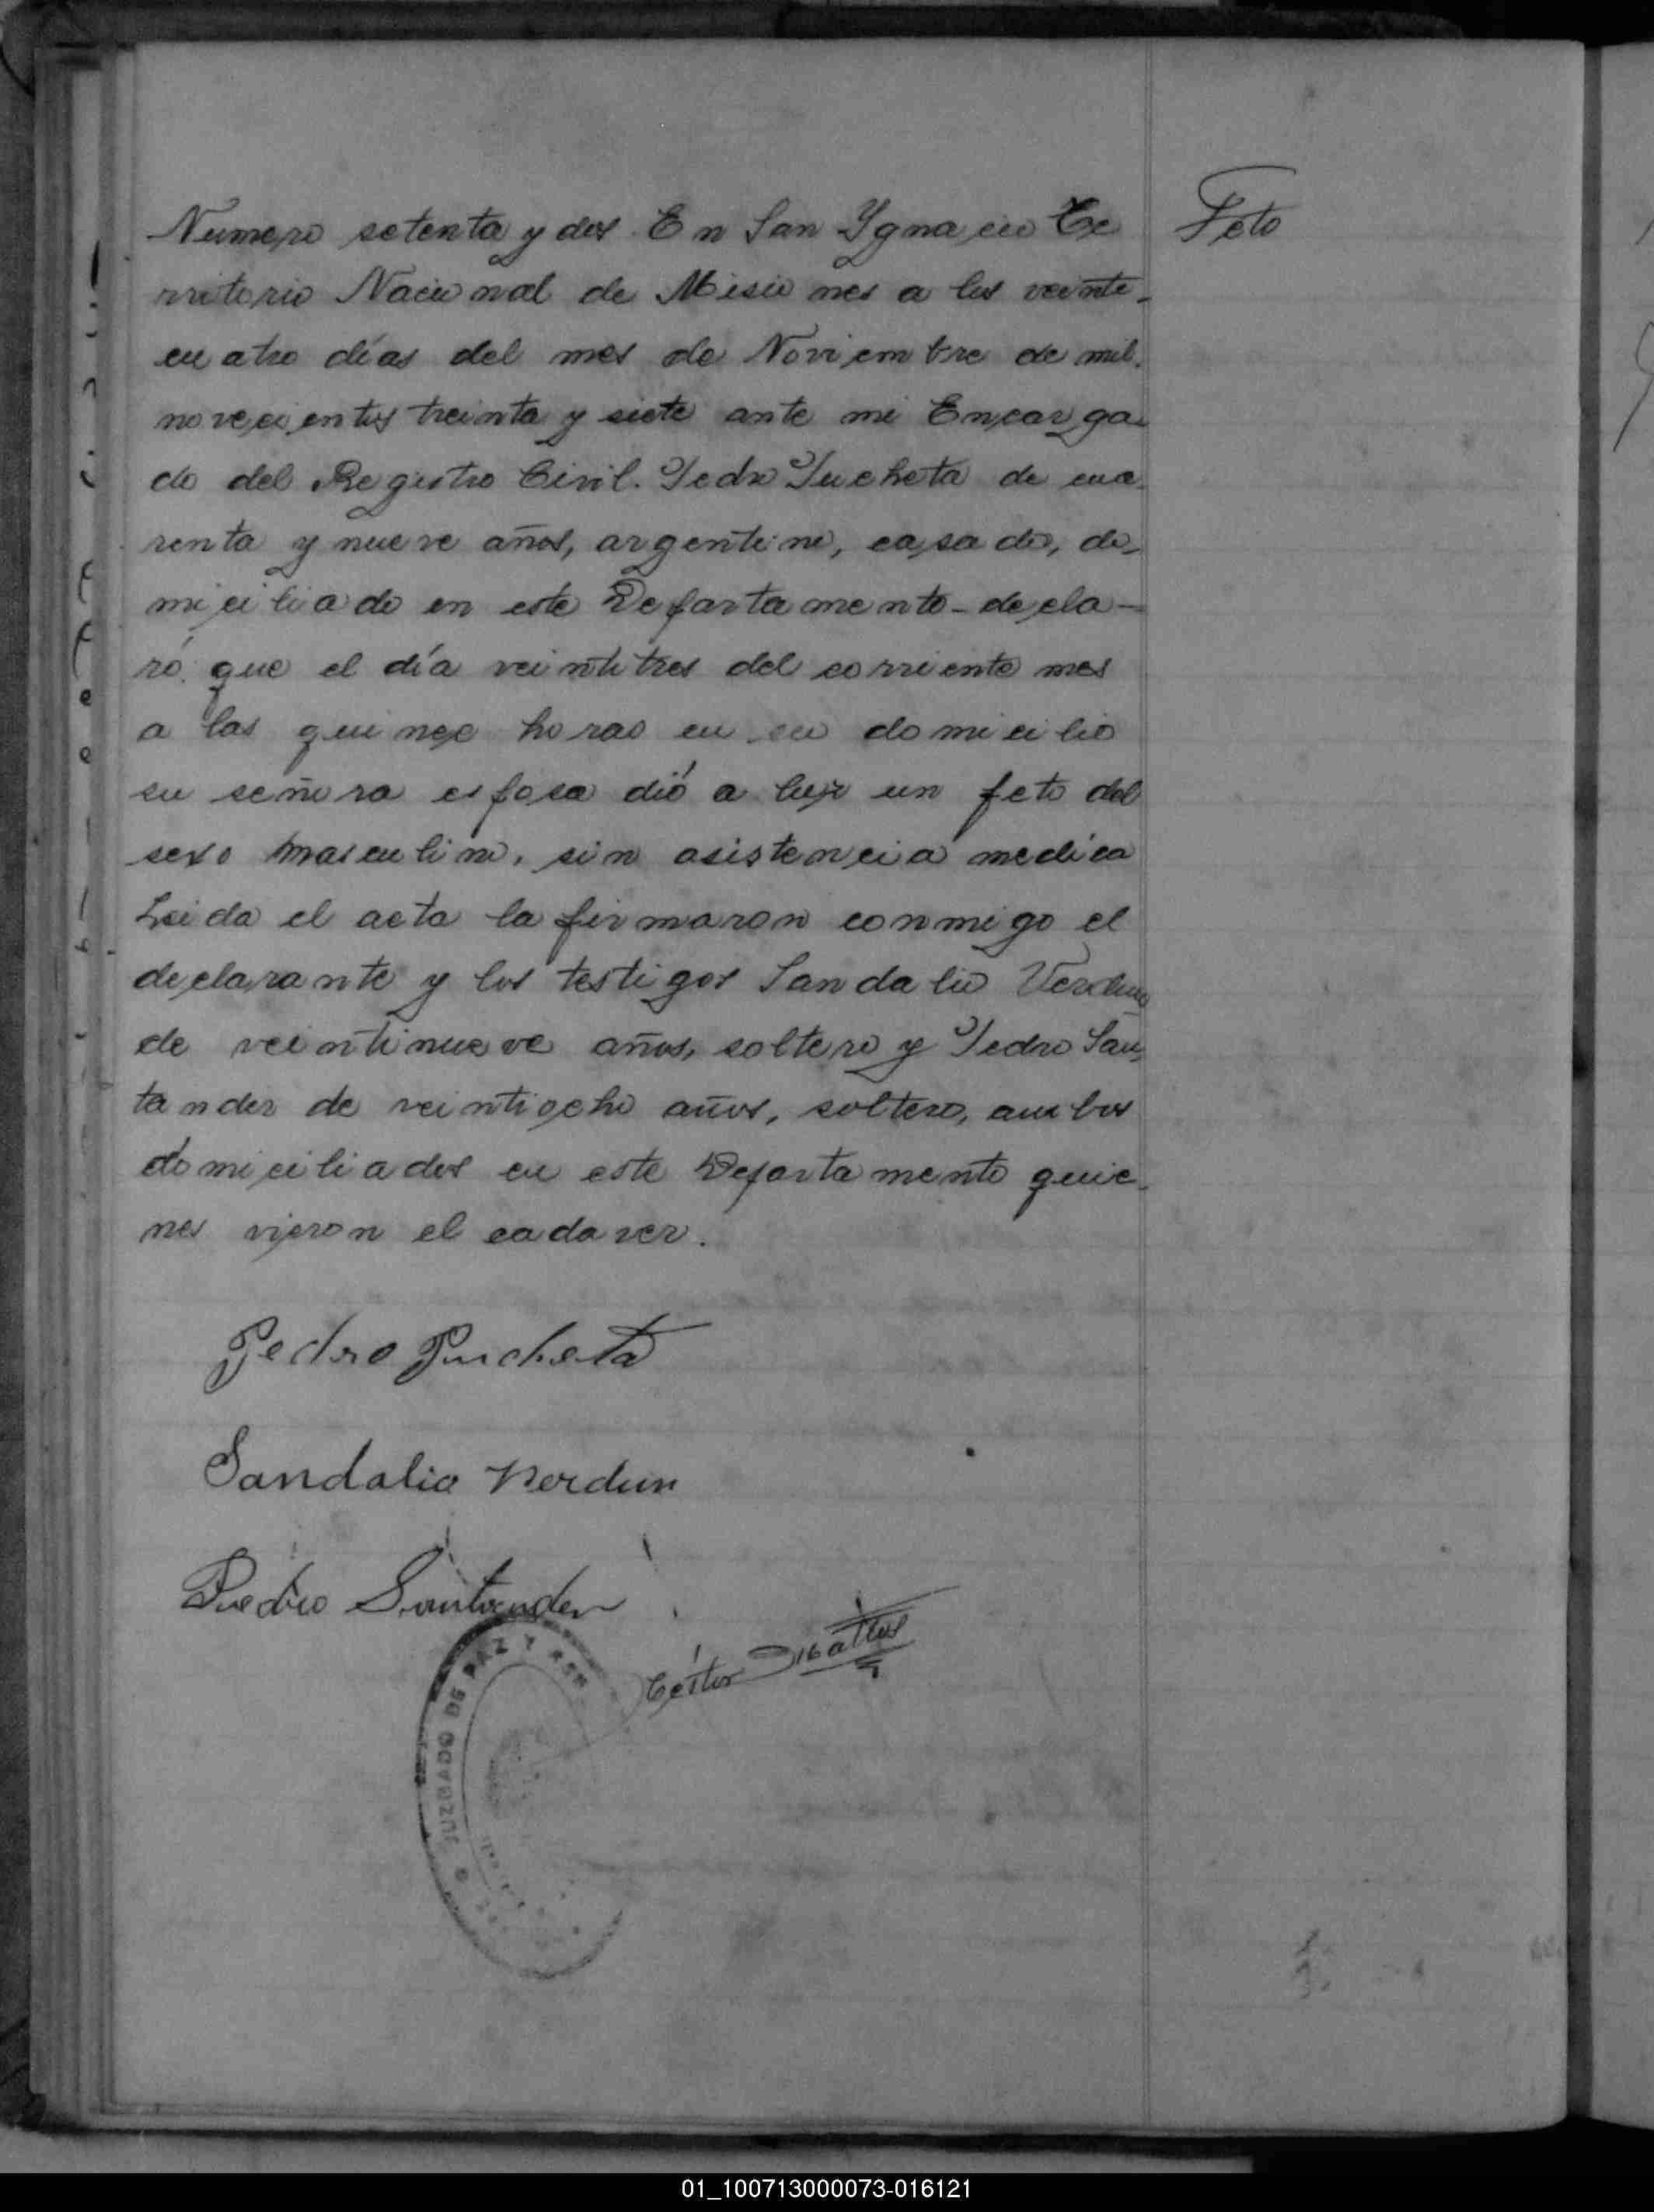 Numero setenta y dos. En San Ygnacio Te
rritorio Nacional de Misiones a los veinte-
cuatro días del mes de Noviembre de mil.
novecientos treinta y siete ante mi Encarga-
do del Registro Civil. Pedro Pucheta de cua-
renta y nueve años, argentino, casado, do-
miciliado en este Departamento - decla-
ró: que el día veintitres del corriente mes
a las quince horas en su domicilio
su señora esposa dió a luz un feto del
sexo masculino, sin asistencia medica
Leida el acta la firmaron conmigo el
declarante y los testigos Sandalio Verdun
de veintinueve años, soltero y Pedro San-
tander de veintiocho años, soltero, ambos
domiciliados en este Departamento quie-
nes vieron el cadaver.
Feto
Pedro Pucheta
Sandalio Verdun
Pedro Santander
JUZGADO DE PAZ Y REG
01_100713000073-016121